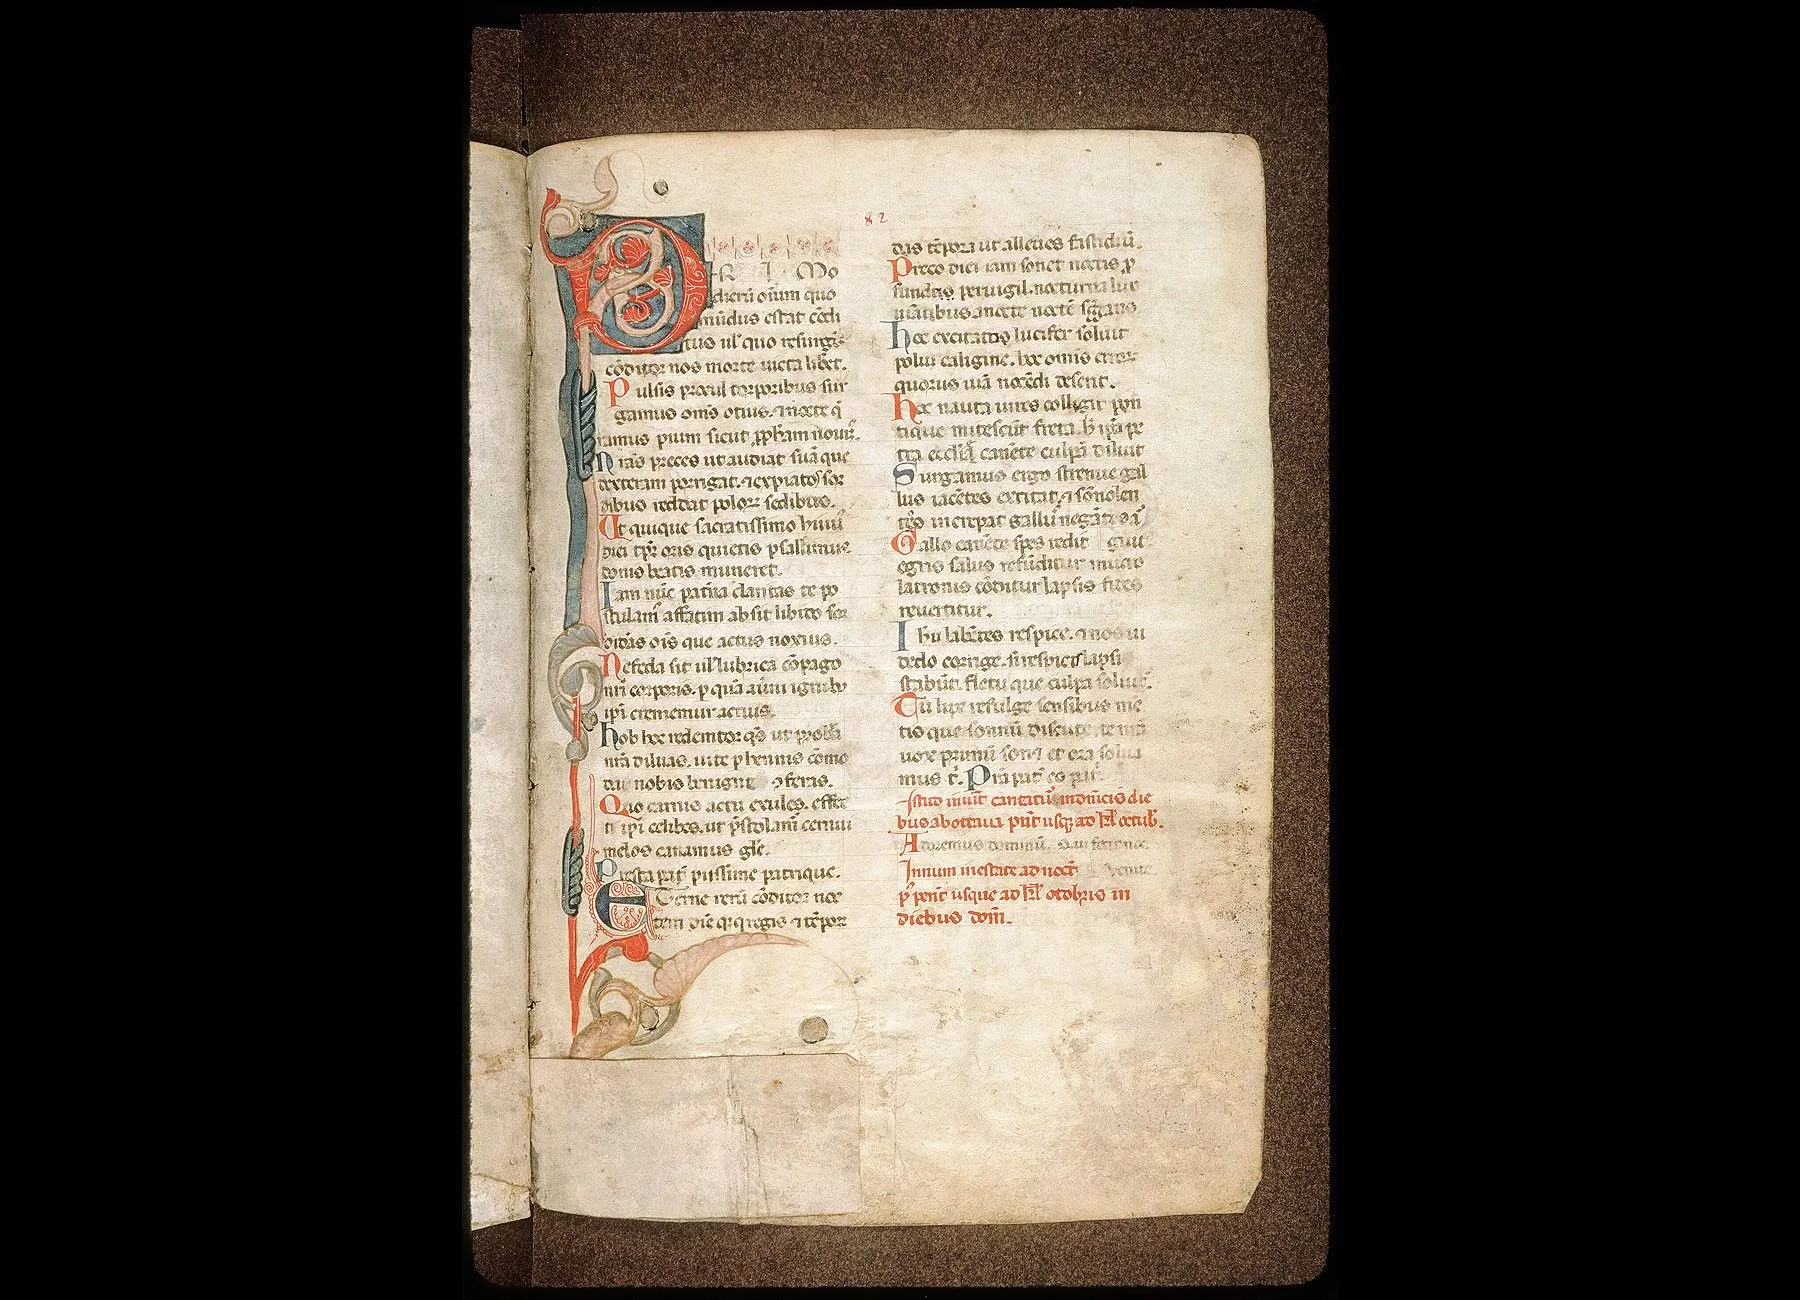 82
PRI MO
dierũ oĩum quo
mũdus extat cõdi
tus ul' quo resurgẽs
cõditor nos morte uicta liberet.
Pulsis procul torporibus sur
gamus om̃s otius. ⁊ nocte q̃
ramus pium sicut ꝓph̃am nouim̃.
Nrãs preces ut audiat suãque
dexteram porrigat. ⁊ expiatos sor
dibus reddat poloꝝ sedibus.
Ut quique sacratissimo huiu᷒
diei tp̃r oris quietis psallimus
donis beatis muneret.
Iam nũc paterna claritas te po
stulam̃ affatim absit libido sor
didãs oĩs que actus noxius.
Ne feda sit ul' lubrica cõpago
nrĩ corporis. p quã auĩni ignib᷒
ipĩ crememur acrius.
Hob hoc redemtor q̃s ut probra
nrã diluas. uite phennis cõmo
da nobis benigne ꝯferas.
Quo carnis actu exules. effec
ti ipĩ celibes. ut p̃stolam̃ cernui
melos canamus gl̃e.
Presta pat̃ piissime patrique.
Eterne rerũ cõditor noc
tem diẽ q̃ q̃ regis ⁊ tẽpoꝝ
das tẽpora ut alleues fastidiũ.
Preco diei iam sonet noctis p̃
fundas peruigil. nocturna lux
uiãtibus a nocte noctẽ sg̃gans
Hoc excitatus lucifer soluit
polũ caligine. hoc om̃is error
quorus uiã nocẽdi deserit.
Hoc nauta uires colligit pon
tique mitescũt freta. h̃ ip̃a pe
tra eccliẽ canẽte culpã diluit
Surgamus ergo strenue gal
lus iacẽtes excitat. ⁊ sõnolen
tos increpat gallus negãtes ar
Gallo canẽte spes redit guit
egris salus refũditur mucro
latronis cõditur lapsis fides
reuertitur.
Ihu labẽtes respice. ⁊ nos ui
dedo corrige. si respicis lapsi
stabũt. fletu que culpa soluit᷑.
Tu lux refulge sensibus mẽ
tis que somnũ discute. te nrã
uox primũ sonet et ora solua
mus t̃. Prã pat̃ eo pat̃.
Istud inuit̃ cantatur in dnĩcis die
bus ab octaua pent̃ usq; ad kl̃ octub̃.
Adoremus dominũ. Qui fecit nos.
Innum in estate ad noct̃ Venite
p̃ pent̃ usque ad kl̃ otobris in
diebus dom̃.